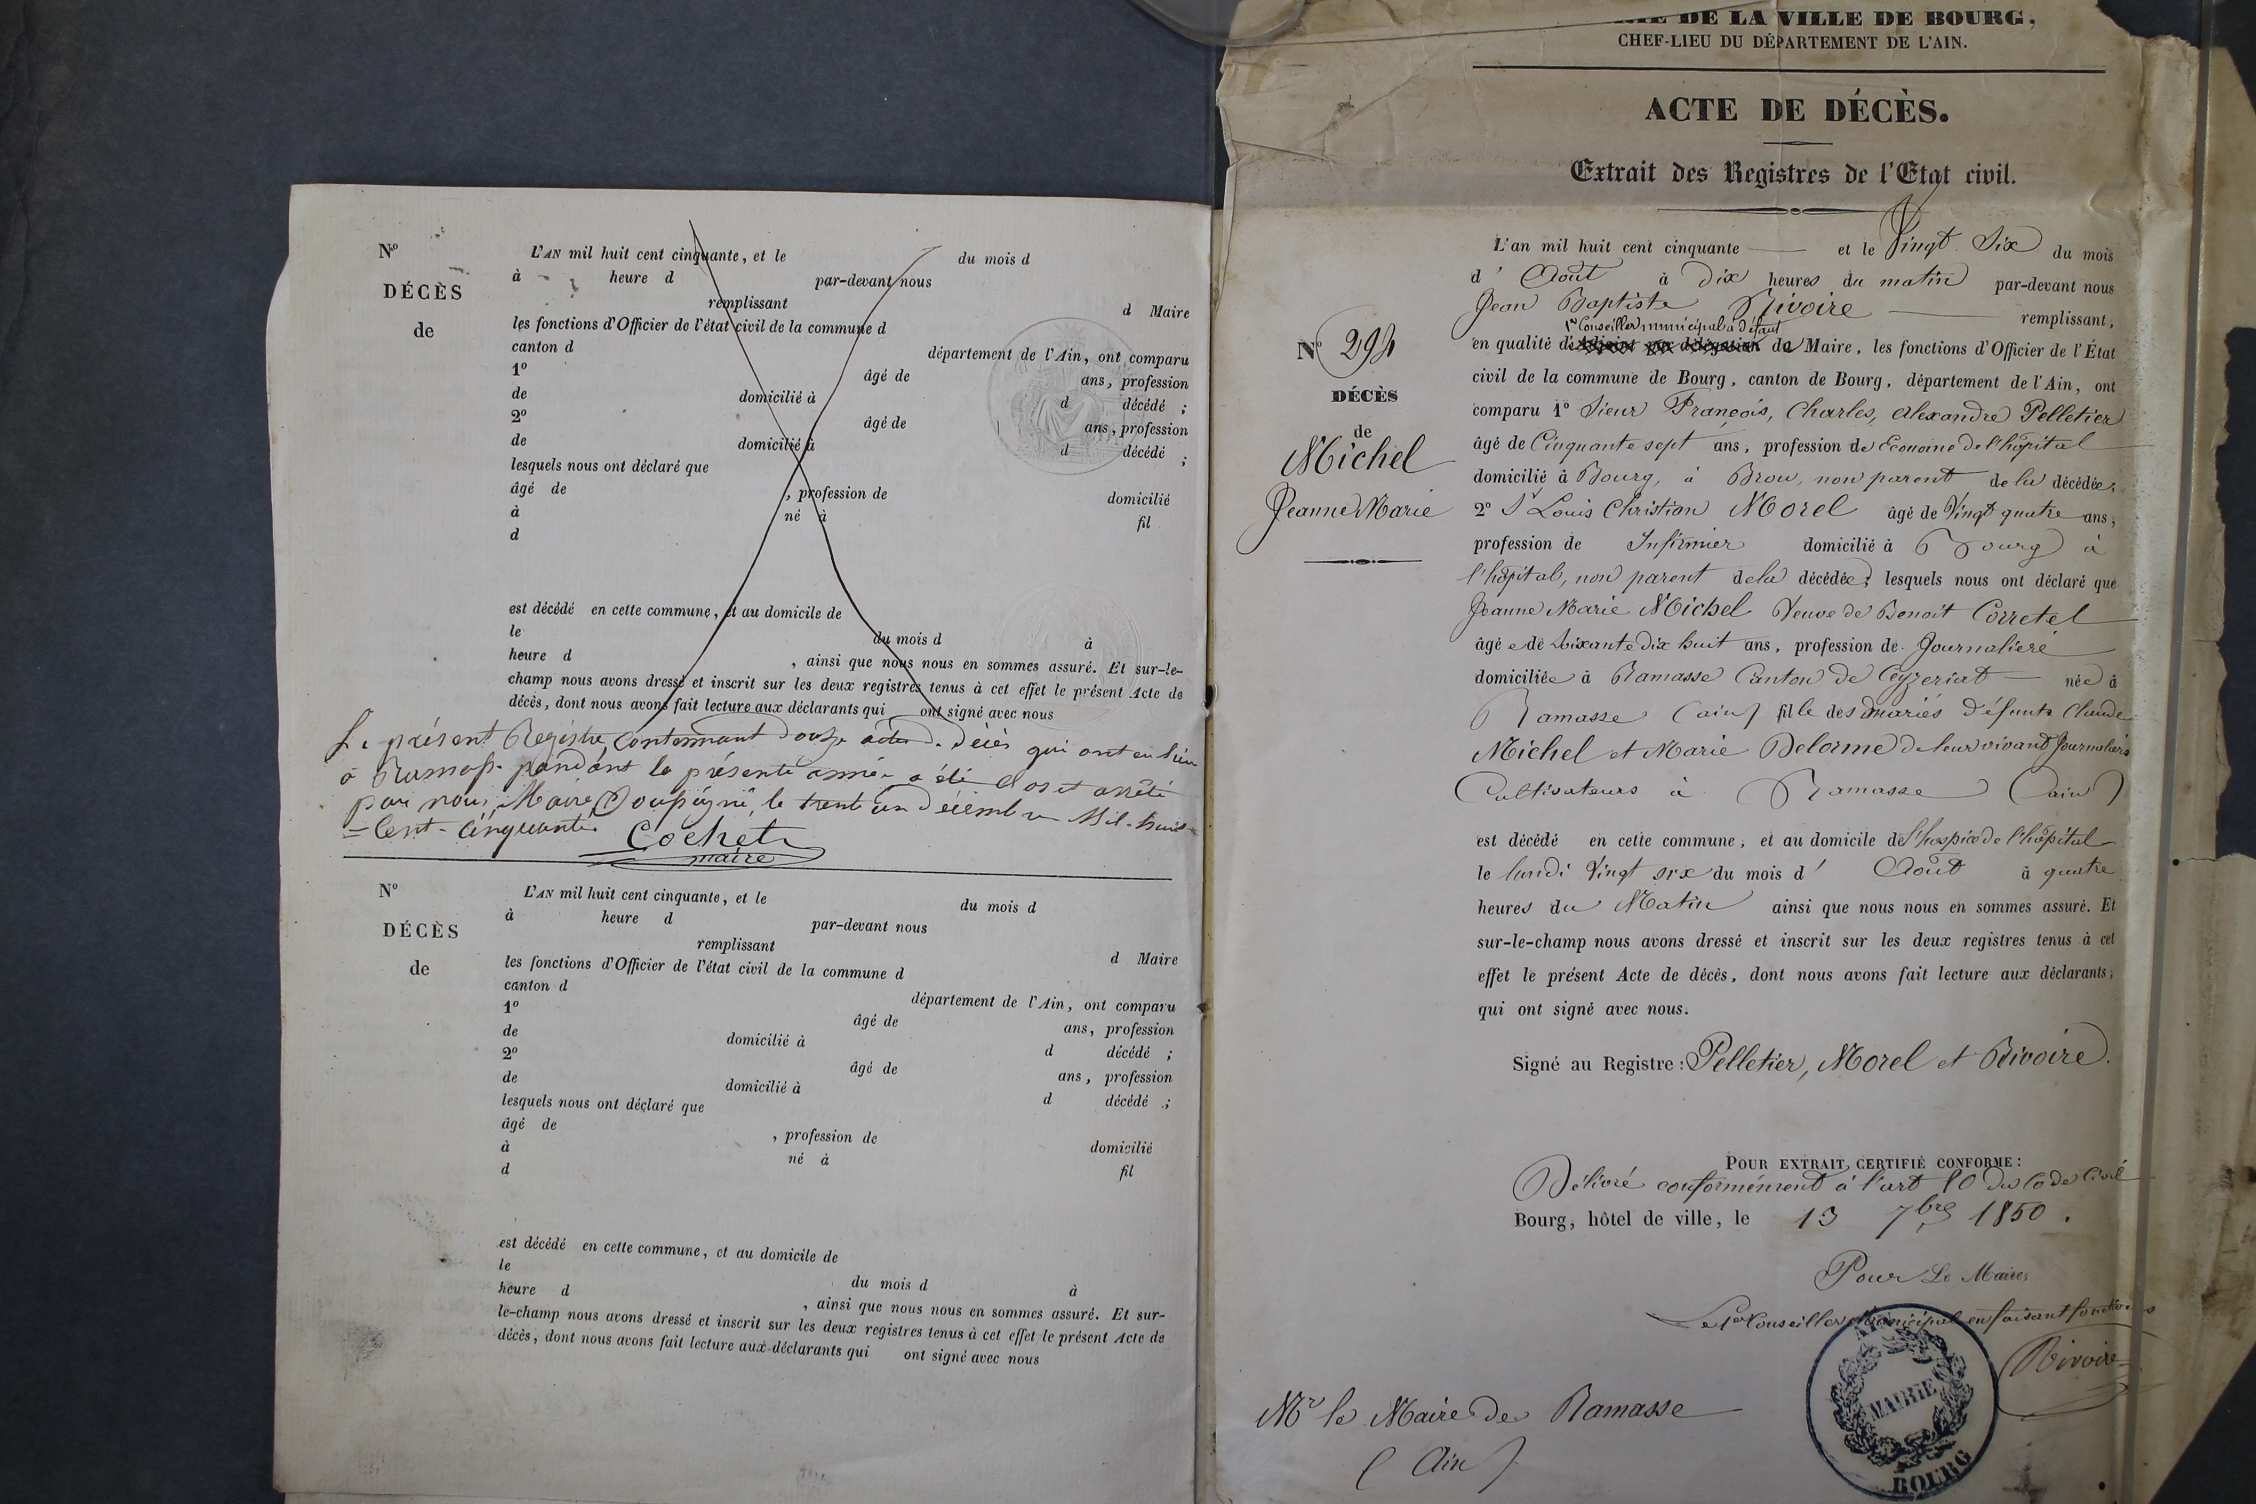 N°
DÉCÈS
de
L'AN mil huit cent cinquante, et le du mois d
à heure d par-devant nous
remplissant d Maire
les fonctions d'Officier de l'état civil de la commune d
canton d département de l'Ain, ont comparu
1° âgé de ans, profession
de domicilié à d décédé ;
2° âgé de ans, profession
de domicilié à d décédé ;
lesquels nous ont déclaré que
âgé de , profession de domicilié
à né à fil
d
est décédé en cette commune, et au domicile de
le du mois d à
heure d , ainsi que nous nous en sommes assuré. Et sur-le-
champ nous avons dressé et inscrit sur les deux registres tenus à cet effet le présent Acte de
décès, dont nous avons fait lecture aux déclarants qui ont signé avec nous
Le présent Registre contennant douze actes de décès qui ont eu lieu
à Ramasse pendant la présente année a été clos et arrêté
par nous, Maire Soussigné, le trente un décembre Mil-huit-
=Cent-Cinquante.
Cochet
maire
N°
DÉCÈS
de
L'AN mil huit cent cinquante, et le du mois d
à heure d par-devant nous
remplissant d Maire
les fonctions d'Officier de l'état civil de la commune d
canton d département de l'Ain, ont comparu
1° âgé de ans, profession
de domicilié à d décédé ;
2° âgé de ans, profession
de domicilié à d décédé ;
lesquels nous ont déclaré que
âgé de , profession de domicilié
à né à fil
d
est décédé en cette commune, et au domicile de
le du mois d à
heure d , ainsi que nous nous en sommes assuré. Et sur-
le-champ nous avons dressé et inscrit sur les deux registres tenus à cet effet le présent Acte de
décès, dont nous avons fait lecture aux déclarants qui ont signé avec nous
DE LA VILLE DE BOURG,
CHEF-LIEU DU DÉPARTEMENT DE L'AIN.
ACTE DE DÉCÈS.
Extrait des Registres de l'Etat civil.
N° 294
DÉCÈS
de
Michel
Jeanne Marie
L'an mil huit cent cinquante et le Vingt Six du mois
d' Août à Dix heures du matin par-devant nous
Jean Baptiste Rivoire remplissant,
1er Conseiller municipal à défaut
en qualité d'Adjoint par délégation de Maire, les fonctions d'Officier de l'État
civil de la commune de Bourg, canton de Bourg, département de l'Ain, ont
comparu 1° Sieur François, Charles, Alexandre Pelletier
âgé de Cinquante sept ans, profession de Econome de l'hôpital
domicilié à Bourg, à Brou, non parent de la décédée;
2° Sr Louis Christian Morel âgé de Vingt quatre ans,
profession de Infirmier domicilié à Bourg à
l'hôpital, non parent de la décédée; lesquels nous ont déclaré que
Jeanne Marie Michel Veuve de Benoit Corretel
âgée de Soixante Dix huit ans, profession de Journaliere
domiciliée à Ramasse Canton de Ceyzeriat née à
Ramasse (ain) fille des mariés défunts Claude
Michel et Marie Delorme de leur vivant Journaliers
Cultivateurs à Ramasse (ain)
est décédé en cette commune, et au domicile de l'hospice de l'hôpital
le lundi Vingt six du mois d' Août à quatre
heures du Matin ainsi que nous nous en sommes assuré. Et
sur-le-champ nous avons dressé et inscrit sur les deux registres tenus à cet
effet le présent Acte de décès, dont nous avons fait lecture aux déclarants,
qui ont signé avec nous.
Signé au Registre : Pelletier, Morel et Rivoire.
POUR EXTRAIT CERTIFIÉ CONFORME :
Délivré conformément à l'art 80 du Code Civil
Bourg, hôtel de ville, le 13 7bre 1850.
Pour Le Maire,
Le 1er Conseiller Municipal en faisant fonctions
Rivoire
AIN
MAIRIE
BOURG
Mr le Maire de Ramasse
(Ain)